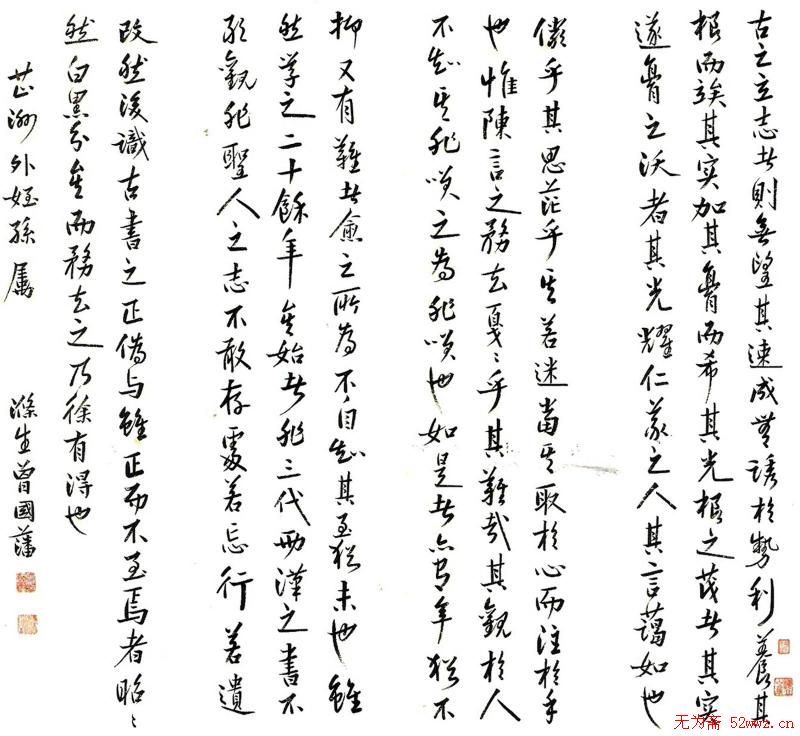 古之立志者則無望其速成無誘於勢利養其
根而竢其实加其膏而希其光根之茂者其实
遂膏之沃者其光耀仁義之人其言藹如也
儼乎其思茫乎其若迷當其取於心而注於手
也惟陳言之務去戛〻乎其難哉其觀於人
不知其非笑之為非笑也如是者亦有年猶不
抑又有難者愈之所為不自知其至猶未也雖
然學之二十餘年矣始者非三代兩漢之書不
敢觀非聖人之志不敢存處若忘行若遺
改然後識古書之正偽與雖正而不至焉者昭〻
然白黑分矣而務去之乃徐有得也
芷洲外姪孫屬
滌生曾國藩
无为斋 52wwz.cn